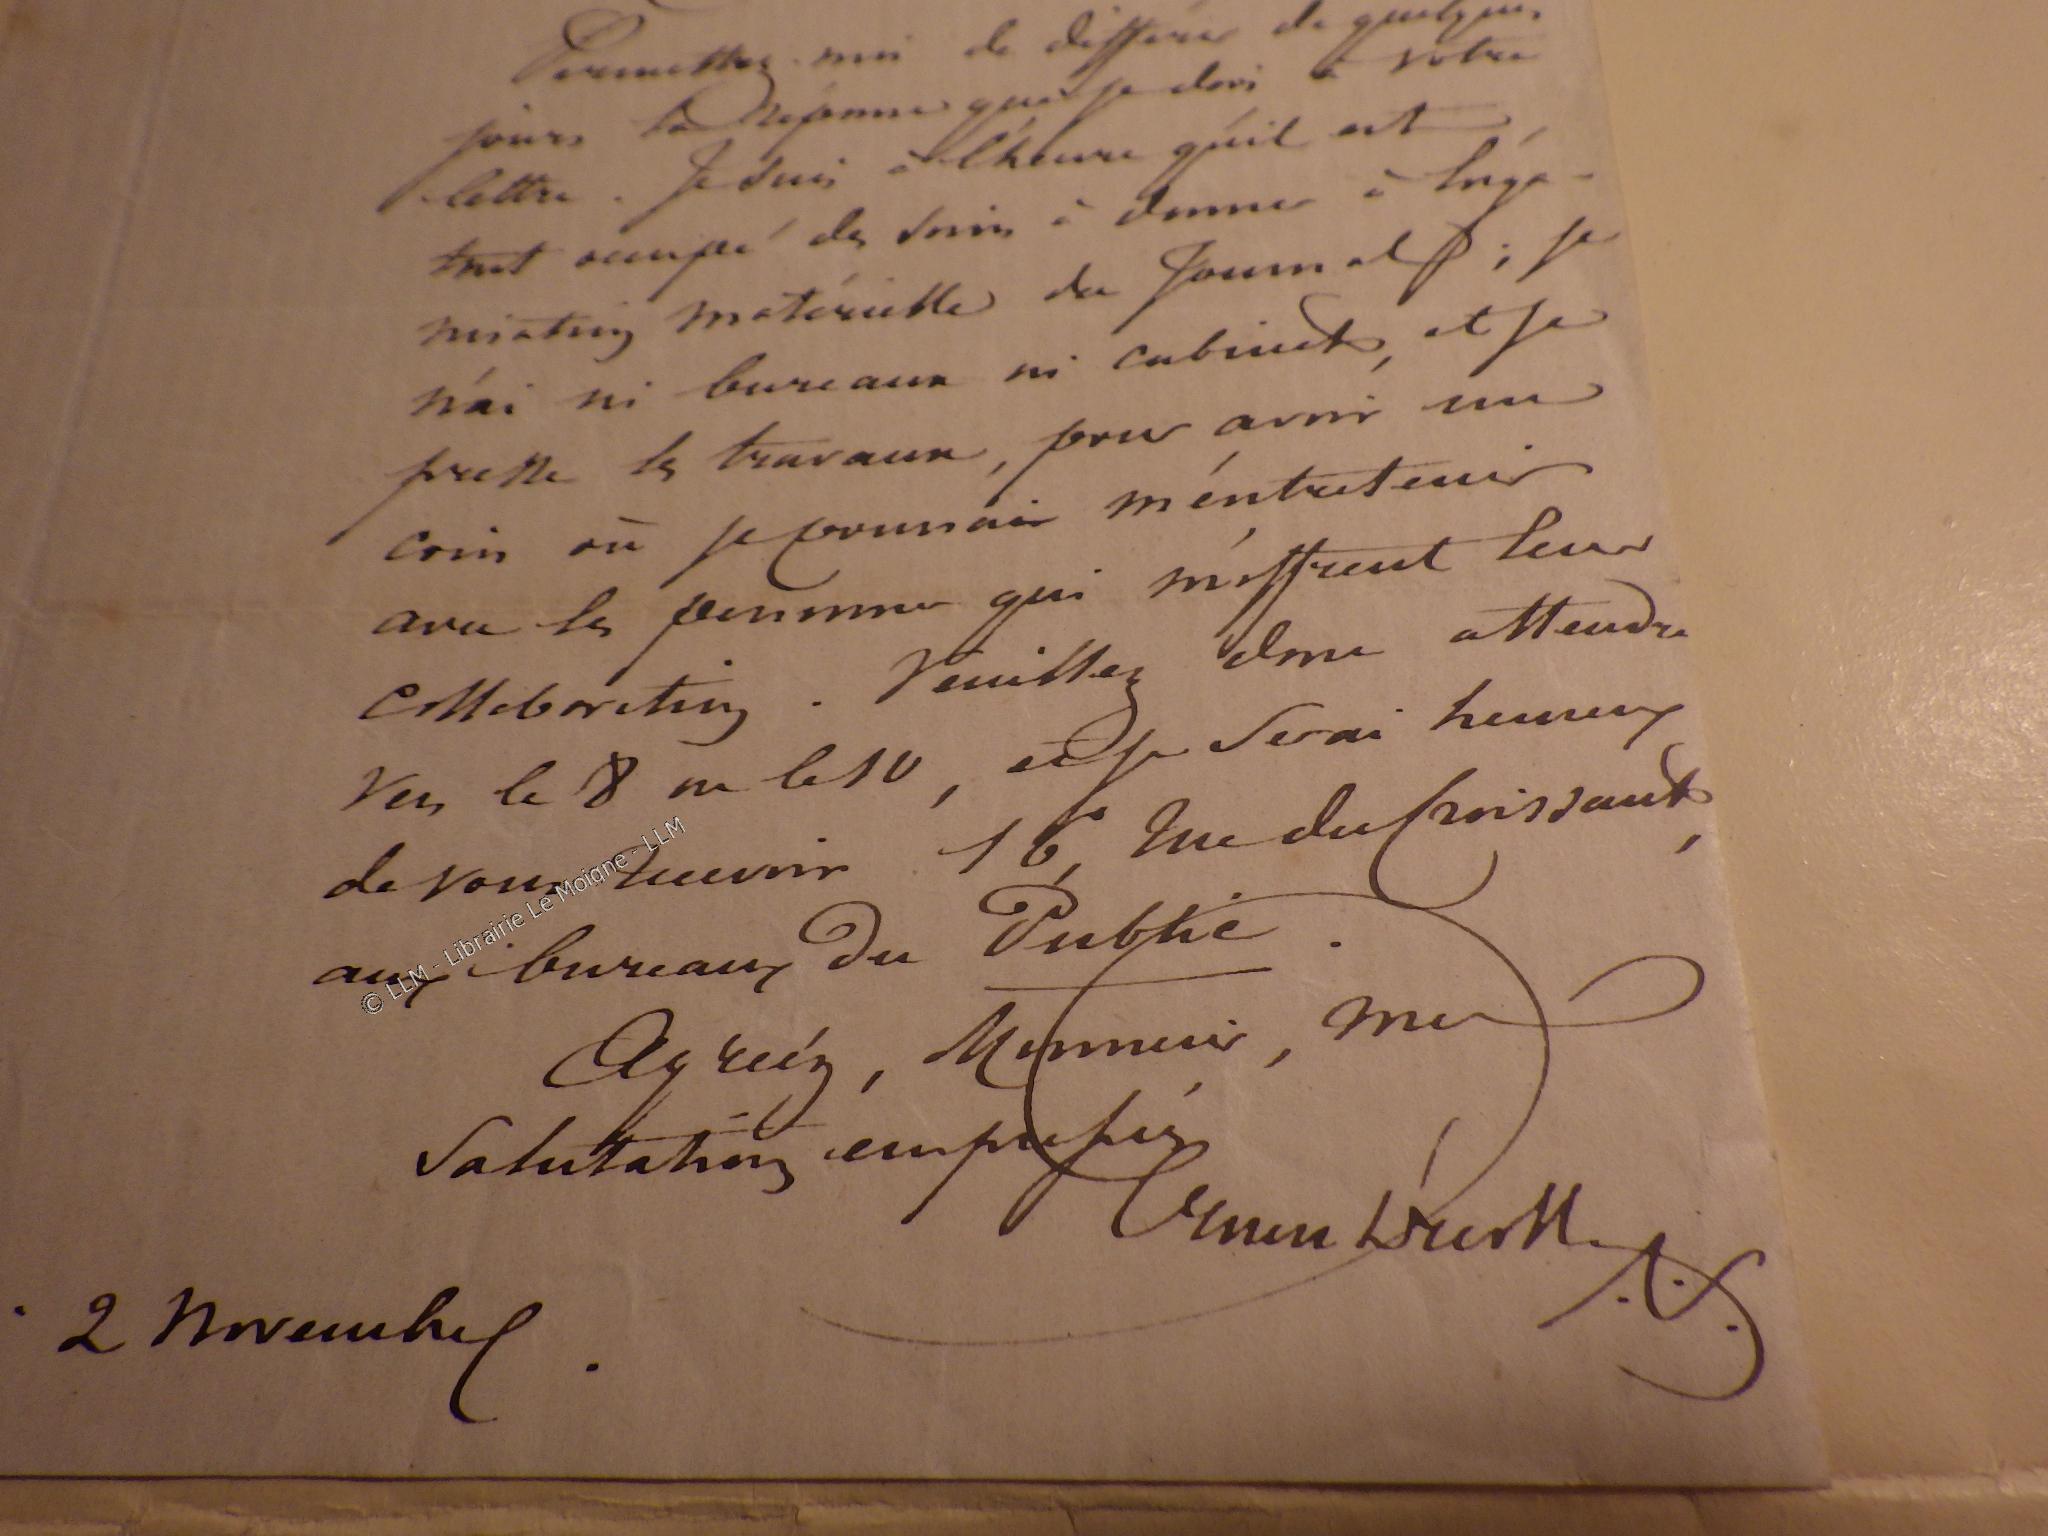 Permettez-moi de différer de quelques
jours la réponse que je dois à votre
lettre. Je suis à l'heure qu'il est
tout occupé des soins à donner à l'orga-
nisation matérielle du Journal; je
n'ai ni bureaux ni cabinet, et je
presse les travaux, pour avoir un
coin où je pourrais m'entretenir
avec les personnes qui m'offrent leur
collaboration. Veuillez donc attendre
vers le 8 ou le 10, et je serai heureux
de vous recevoir 16, rue du Croissant,
aux bureaux du Public.
Agréez, Monsieur, mes
salutations empressées
Ernest Dréolle
2 Novembre.
© LLM - Librairie Le Moigne - LLM